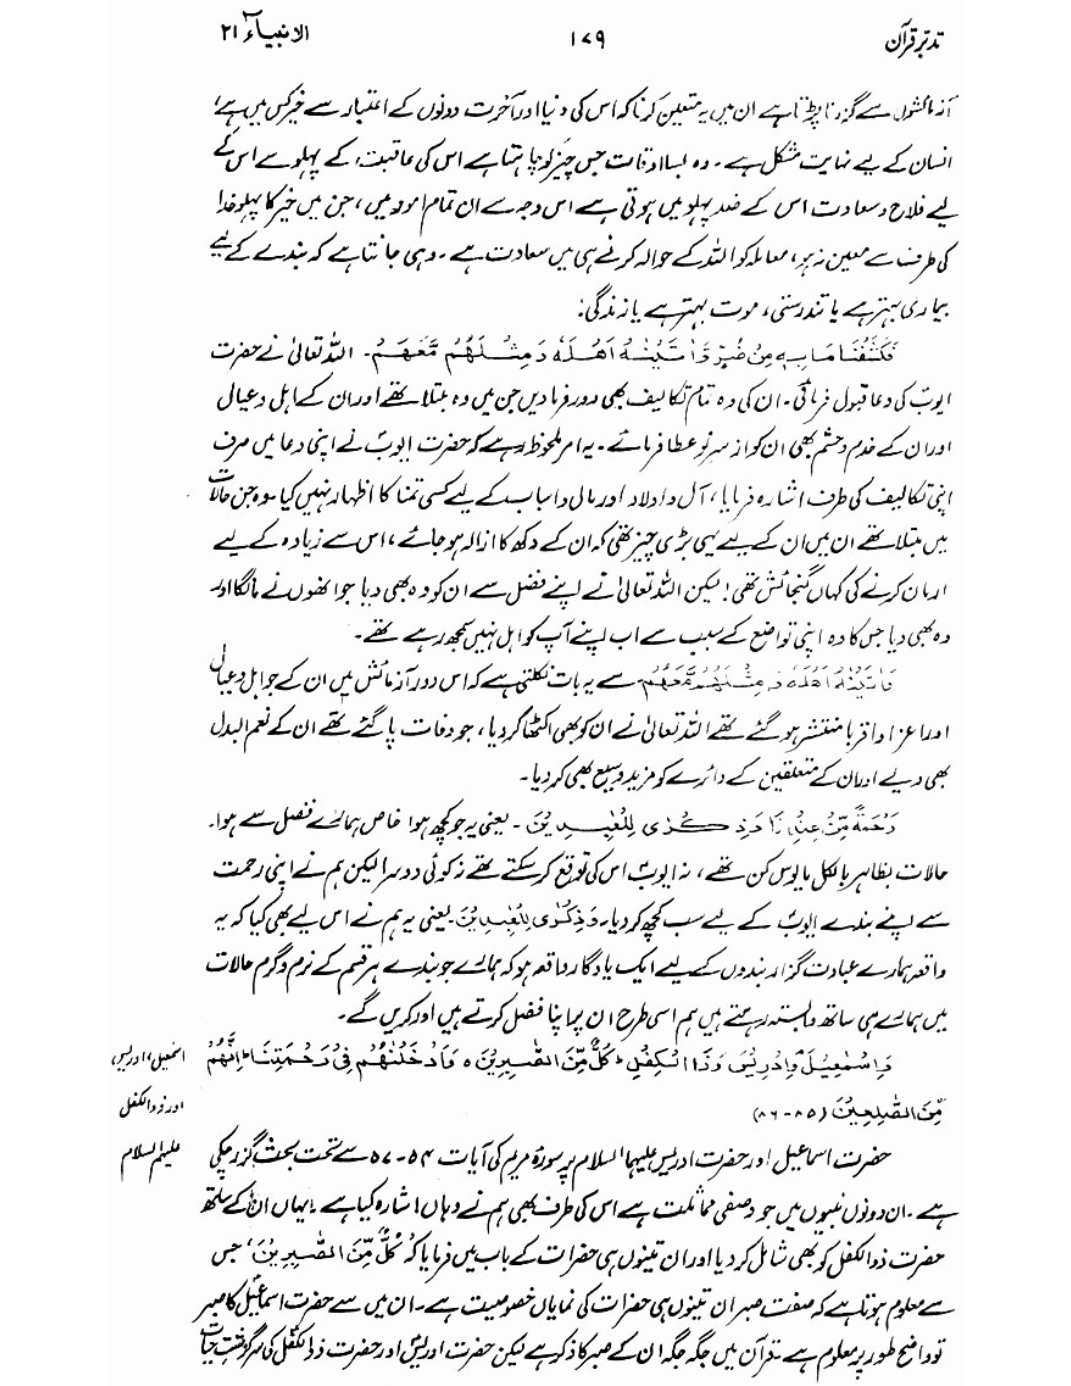 تدبرِ قرآن ۱۷۹ الانبیآء ۲۱
آزمائشوں سے گزرنا پڑتا ہے ان میں یہ متعین کرنا کہ اس کی دنیا اور آخرت دونوں کے اعتبار سے خیر کس میں ہے،
انسان کے لیے نہایت مشکل ہے۔ وہ بسا اوقات جس چیز کو چاہتا ہے اس کی عاقبت، کے پہلو سے اس کے
لیے فلاح و سعادت اس کے ضد پہلو میں ہوتی ہے اس وجہ سے ان تمام امور میں، جن میں خیر کا پہلو خدا
کی طرف سے معین نہ ہو، معاملہ کو اللہ کے حوالہ کرنے ہی میں سعادت ہے۔ وہی جانتا ہے کہ بندے کے لیے
بیماری بہتر ہے یا تندرستی، موت بہتر ہے یا زندگی؛
فَكَشَفْنَا مَا بِهٖ مِنْ ضُرٍّ وَّاٰتَيْنٰهُ اَهْلَهٗ وَمِثْلَهُمْ مَّعَهُمْ۔ اللہ تعالیٰ نے حضرت
ایوبؑ کی دعا قبول فرمائی۔ ان کی وہ تمام تکالیف بھی دور فرما دیں جن میں وہ مبتلا تھے اور ان کے اہل و عیال
اور ان کے خدم و حشم بھی ان کو از سرِ نو عطا فرمائے۔ یہ امر ملحوظ رہے کہ حضرت ایوبؑ نے اپنی دعا میں صرف
اپنی تکالیف کی طرف اشارہ فرمایا، آل و اولاد اور مال و اسباب کے لیے کسی تمنا کا اظہار نہیں کیا۔ وہ جن حالات
میں مبتلا تھے ان میں ان کے لیے یہی بڑی چیز تھی کہ ان کے دکھ کا ازالہ ہو جائے، اس سے زیادہ کے لیے
ارمان کرنے کی کہاں گنجائش تھی! لیکن اللہ تعالیٰ نے اپنے فضل سے ان کو وہ بھی دیا جو انھوں نے مانگا اور
وہ بھی دیا جس کا وہ اپنی تواضع کے سبب سے اب اپنے آپ کو اہل نہیں سمجھ رہے تھے۔
وَاٰتَيْنٰهُ اَهْلَهٗ وَمِثْلَهُمْ مَّعَهُمْ سے یہ بات نکلتی ہے کہ اس دورِ آزمائش میں ان کے جو اہل و عیال
اور اعزا و اقربا منتشر ہو گئے تھے اللہ تعالیٰ نے ان کو بھی اکٹھا کر دیا، جو وفات پا گئے تھے ان کے نعم البدل
بھی دیے اور ان کے متعلقین کے دائرے کو مزید وسیع بھی کر دیا۔
رَحْمَةً مِّنْ عِنْدِنَا وَذِكْرٰى لِلْعٰبِدِيْنَ۔ یعنی یہ جو کچھ ہوا خاص ہمارے فضل سے ہوا۔
حالات بظاہر بالکل مایوس کن تھے، نہ ایوبؑ اس کی توقع کر سکتے تھے نہ کوئی دوسرا لیکن ہم نے اپنی رحمت
سے اپنے بندے ایوبؑ کے لیے سب کچھ کر دیا۔ وَذِكْرٰى لِلْعٰبِدِيْنَ۔ یعنی یہ ہم نے اس لیے بھی کیا کہ یہ
واقعہ ہمارے عبادت گزار بندوں کے لیے ایک یادگار واقعہ ہو کہ ہمارے جو بندے ہر قسم کے نرم و گرم حالات
میں ہمارے ہی ساتھ وابستہ رہتے ہیں ہم اسی طرح ان پر اپنا فضل کرتے ہیں اور کریں گے۔
وَاِسْمٰعِيْلَ وَاِدْرِيْسَ وَذَا الْكِفْلِ ؕ كُلٌّ مِّنَ الصّٰبِرِيْنَ ہ وَاَدْخَلْنٰهُمْ فِيْ رَحْمَتِنَا ؕ اِنَّهُمْ
اسمٰعیل، ادریس،
مِّنَ الصّٰلِحِيْنَ (۸۵-۸۶)
اور ذوالکفل
علیہم السلام
حضرت اسماعیل اور حضرت ادریس علیہما السلام پر سورۂ مریم کی آیات ۵۴-۵۷ کے تحت بحث گزر چکی
ہے۔ ان دونوں نبیوں میں جو وصفی مماثلت ہے اس کی طرف بھی ہم نے وہاں اشارہ کیا ہے۔ یہاں ان کے ساتھ
حضرت ذوالکفل کو بھی شامل کر دیا اور ان تینوں ہی حضرات کے باب میں فرمایا کہ 'كُلٌّ مِّنَ الصّٰبِرِيْنَ' جس
سے معلوم ہوتا ہے کہ صفت صبر ان تینوں ہی حضرات کی نمایاں خصوصیت ہے۔ ان میں سے حضرت اسماعیلؑ کا صبر
تو واضح طور پر معلوم ہے۔ قرآن میں جگہ جگہ ان کے صبر کا ذکر ہے لیکن حضرت ادریسؑ اور حضرت ذوالکفلؑ کی سرگزشتِ حیات